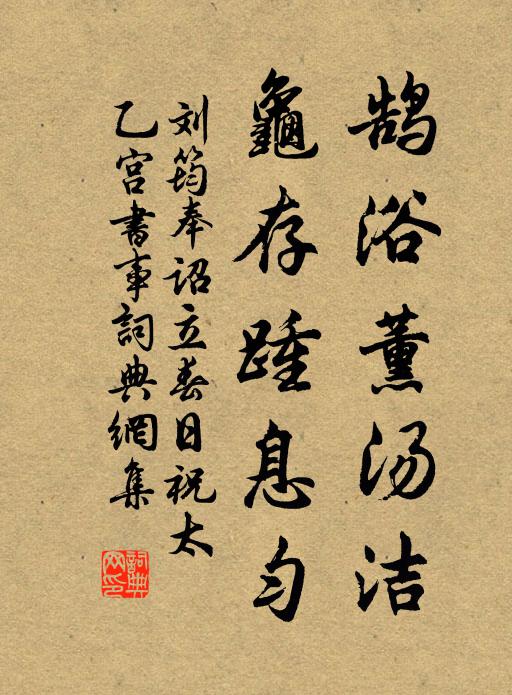 鹄浴薰汤洁
龜存踵息匀
刘筠奉诏立春日祝太
乙宫書事詞典網集
詞典网印